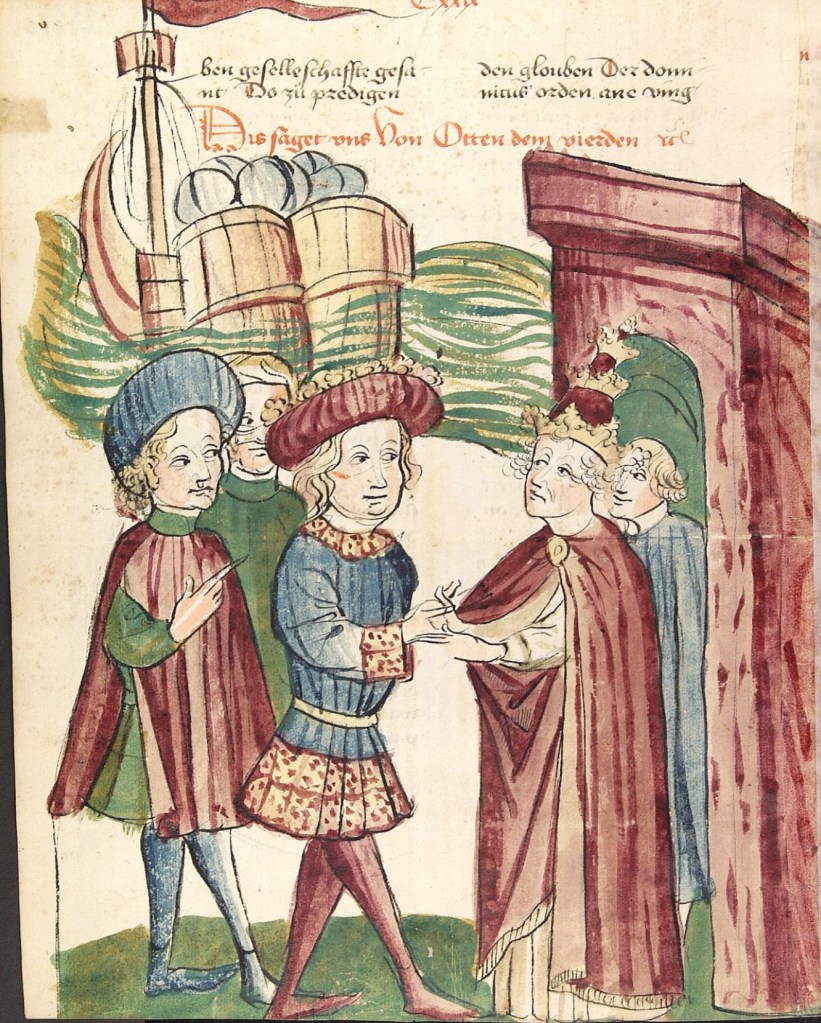 Cxxii
ben geselleschaffte gesa
nt Do zü predigen
den glouben Der domi
nicus orden ane ving
Dis saget vns Von Otten dem vierden